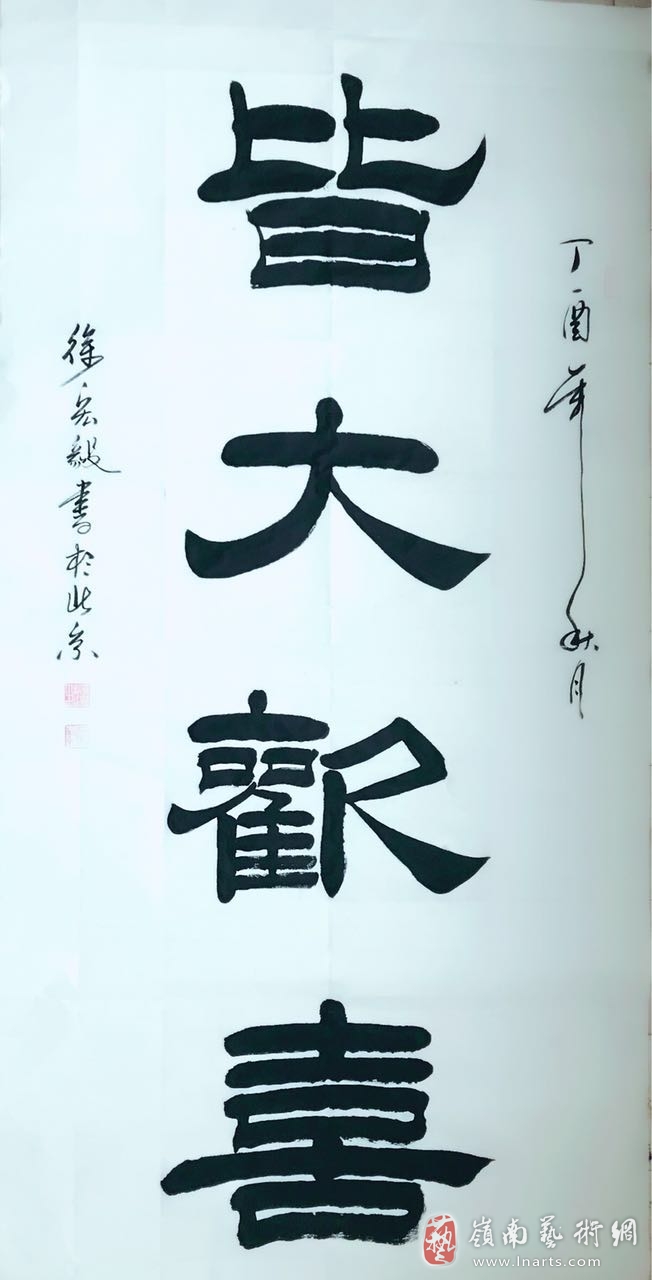 丁酉年秋月
皆大歡喜
徐宏毅書於北京
嶺南藝術網
www.lnarts.com